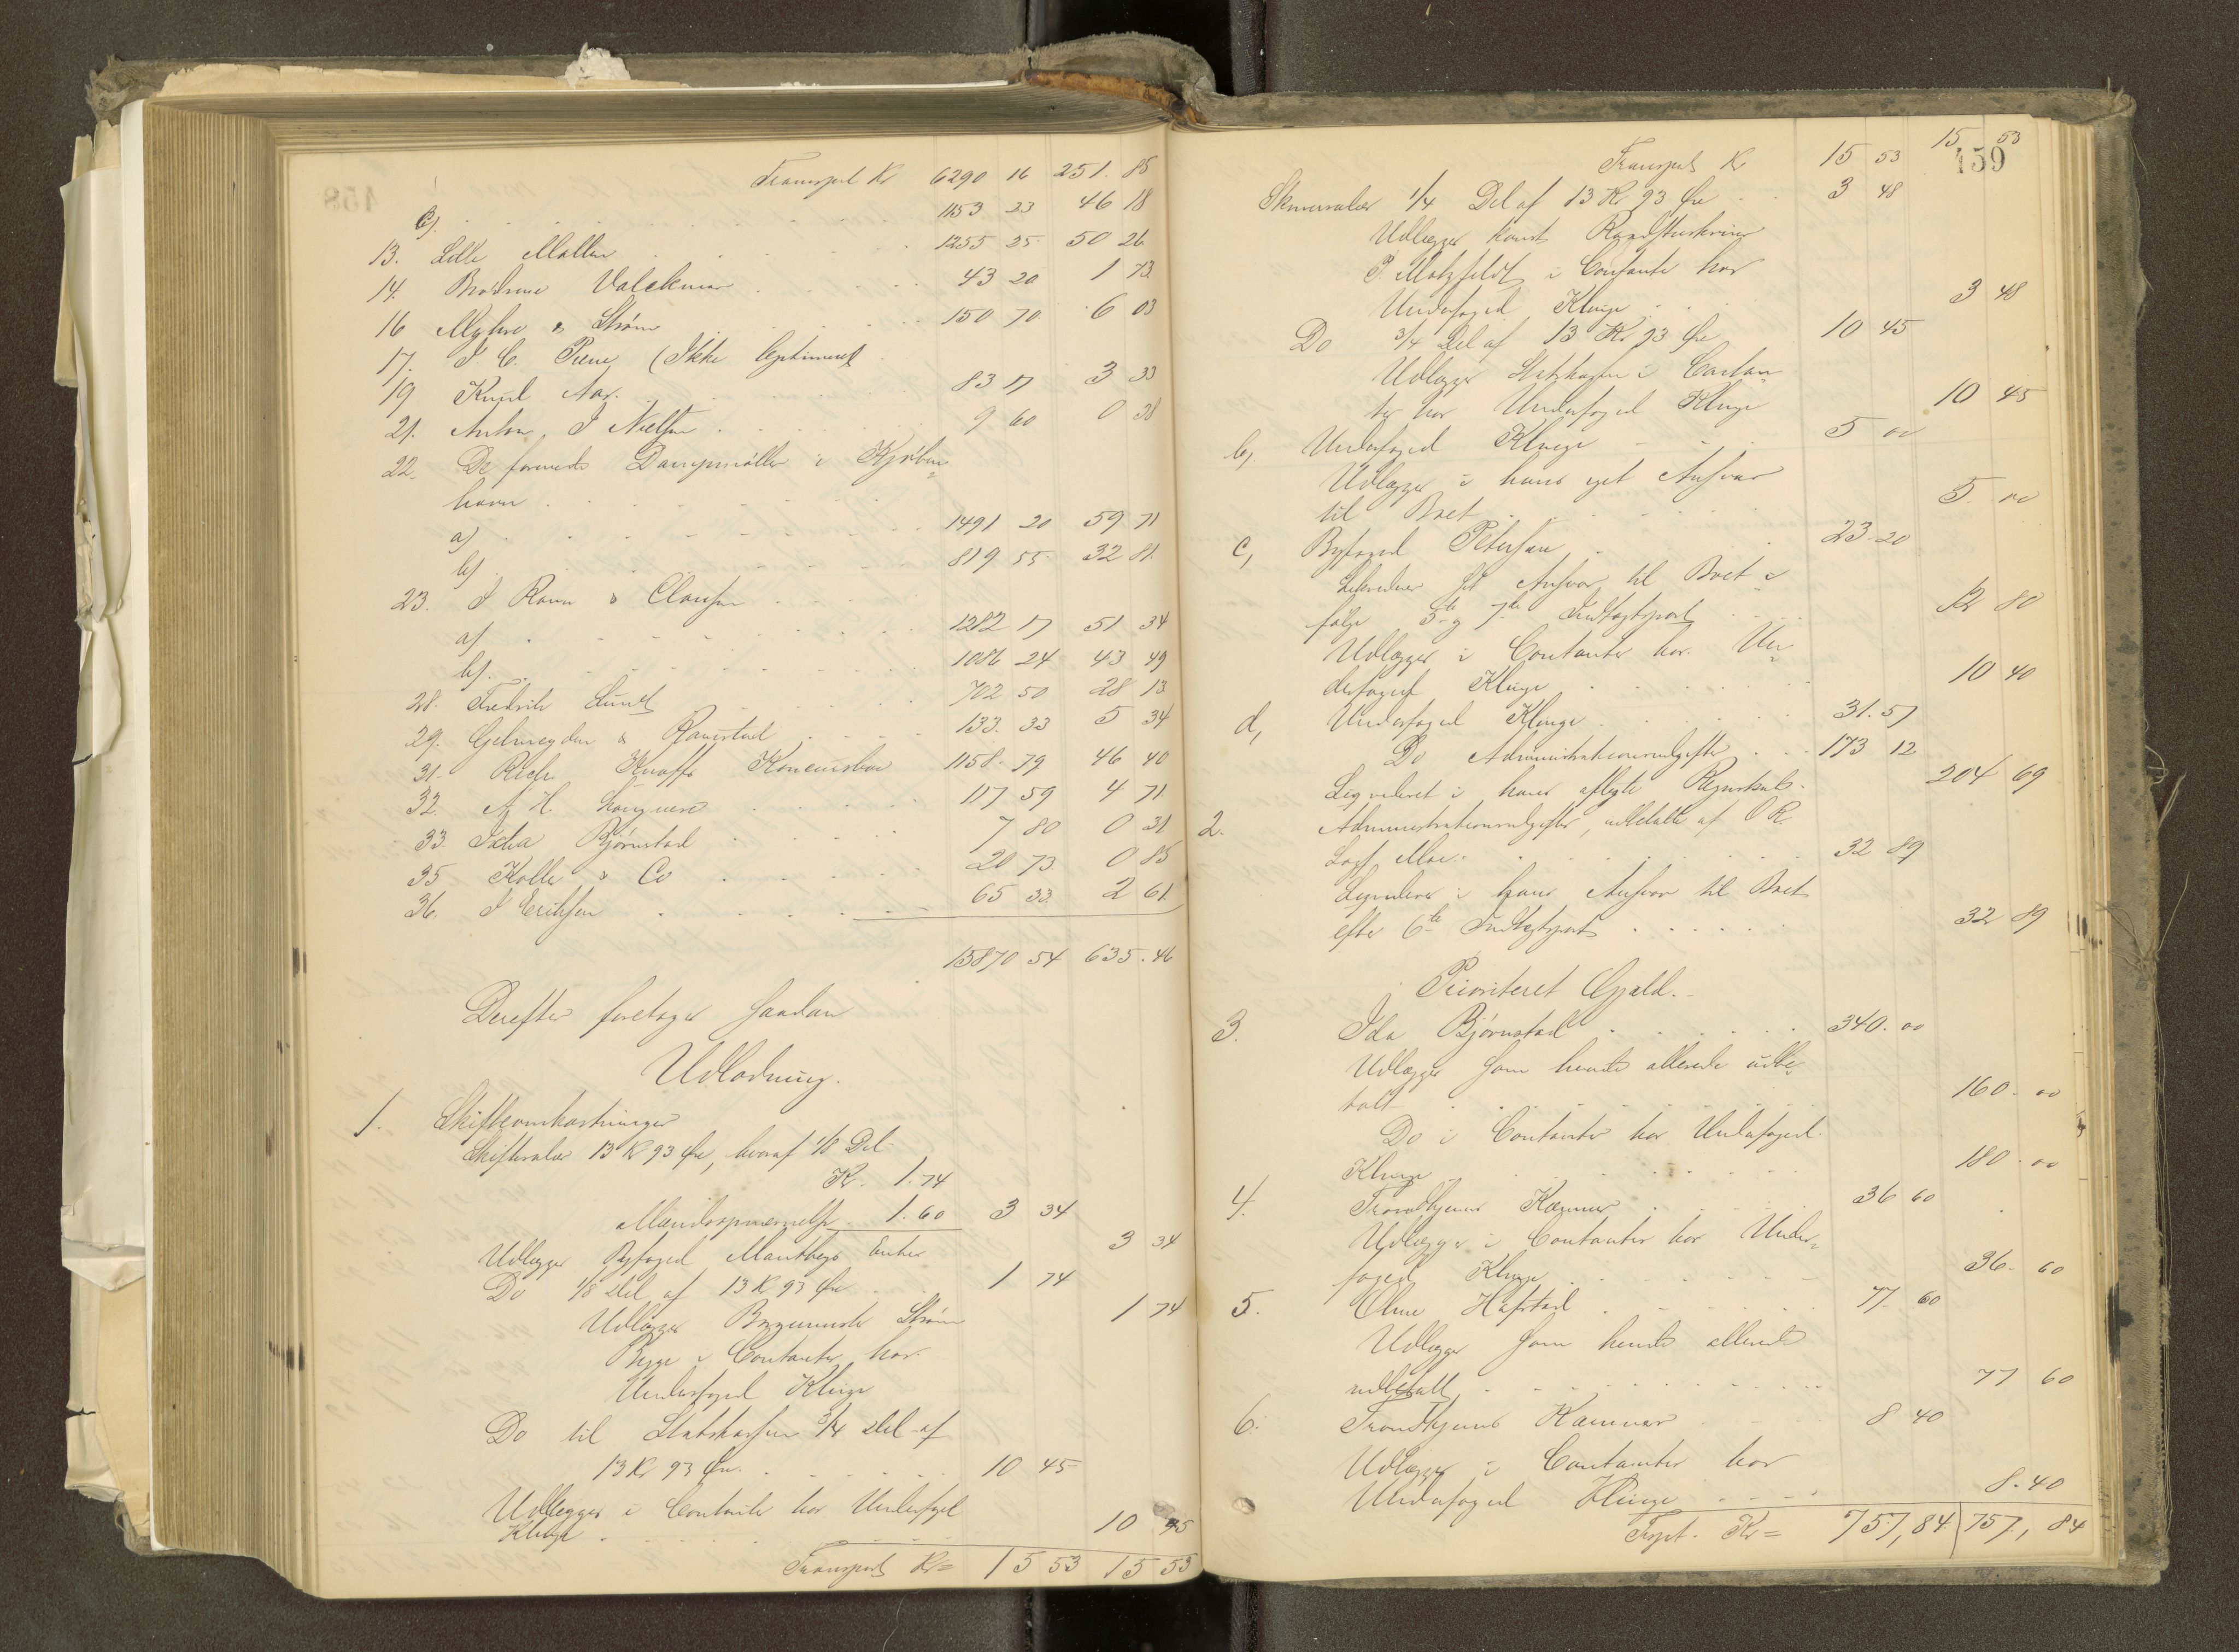 Transport Kr 6290 16 251. 85
b) . . . 1153 23 46 18
13. Lilli Møller . . 1255 25 50 26
14. Brødrene Valckmar . . 43 20 1 73
16 Myhre & Strøm . . 150 70 6 03
17. J. C. Piene (Ikke legitimeret
19 Knud Aar. . . 83 17 3 33
21. Anton J Nielsen . . 9 60 0 38
22. De forenede Dampmøller i Kjøben
havn . . .
a) . . . 1491 20 59 71
b) . . . 819 55 32 81.
23. J Ravn & Clausen . . .
a) . . . 1282 17 51 34
b) . . . 1086 24 43 49
28. Fredrik Lund . . 702 50 28 13
29. Gelmeyden & Ramstad . . 133. 33 5 34
31. Richr Knoffs Koncursbo 1158. 79 46 40
32. A H . . 117 59 4 71
33. Ida Bjørnstad . . 7 80 0 31
35 Koller & Co . . 20 73. 0 85
36. J Eriksen . . 65 33 2 61
15870 54 635. 46
Derefter foretages saadan
Udlodning.
1. Skifteomkostninger
Skiftesalær 13 Kr 93 Øre, hvoraf 1/8 Del
Kr. 1.74
Mandsopnævnelse 1.60 3 34
Udlægges Byfoged Mantheys Enke 3 34
Do 1/8 Del af 13 Kr 93 Øre . . 1 74
Udlægges Borgermester Strøm 1 74
Begge i Contanter hos
Underfoged Klinge
Do til Statskassen 3/4 Del af
13 Kr 93 Øre. . . 10 45
Udlægges i Contanter hos Underfoged
Klinge . . . 10 45
Transport Kr= 15 53 15 53
159
Transport Kr 15 53 15 53
Skriversalær 1/4 Del af 13 Kr 93 Øre . . 3 48
Udlægges konst.
P. Motzfeldt i Contante hos
Underfoged Klinge . . 3 48
Do 3/4 Del af 13 Kr 93 Øre 10 45
Udlægges Statskassen i Contan
ter hos Underfoged Klinge 10 45
b, Underfoged Klinge . . 5 00
Udlægges i hans eget Ansvar
til Boet . . . 5 00
c, Byfoged Petersen . . 23. 20
Likvideres sit Ansvar til Boet i
følge 5te og 7de Indtægtspost . . 12 80
Udlægges i Contanter hos Un
derfoged Klinge . . 10 40
d, Underfoged Klinge . . 31. 57
Do Administrationsudgifter . . 173 12
Liqvideret i hans aflagte Regnskab. 204 69
2. Administrationsudgifter, udbetalte af O R.
Sagf. Moe. . . 32 89
Liqvideres i hans Ansvar til Boet
efter 6te Indtægtspost . . 32 89
Prioriteret Gjæld.
3. Ida Bjørnstad . . 340. 00
Udlægges som hende allerede udbe
talt . . . 160. 00
Do i Contanter hos Underfoged
Klinge . . . 180. 00
4. Trondhjems Kæmner . . 36 60
Udlægges i Contanter hos Under
foged Klinge . . 36. 60
5. Oline Hafstad . . 77. 60
Udlægges som hende allerede
udbetalt . . 77 60
6. Trondhjems Kæmner . . 8 40
Udlægges i Contanter hos
Underfoged Klinge . . 8. 40
Trspt. Kr= 757, 84 757, 84